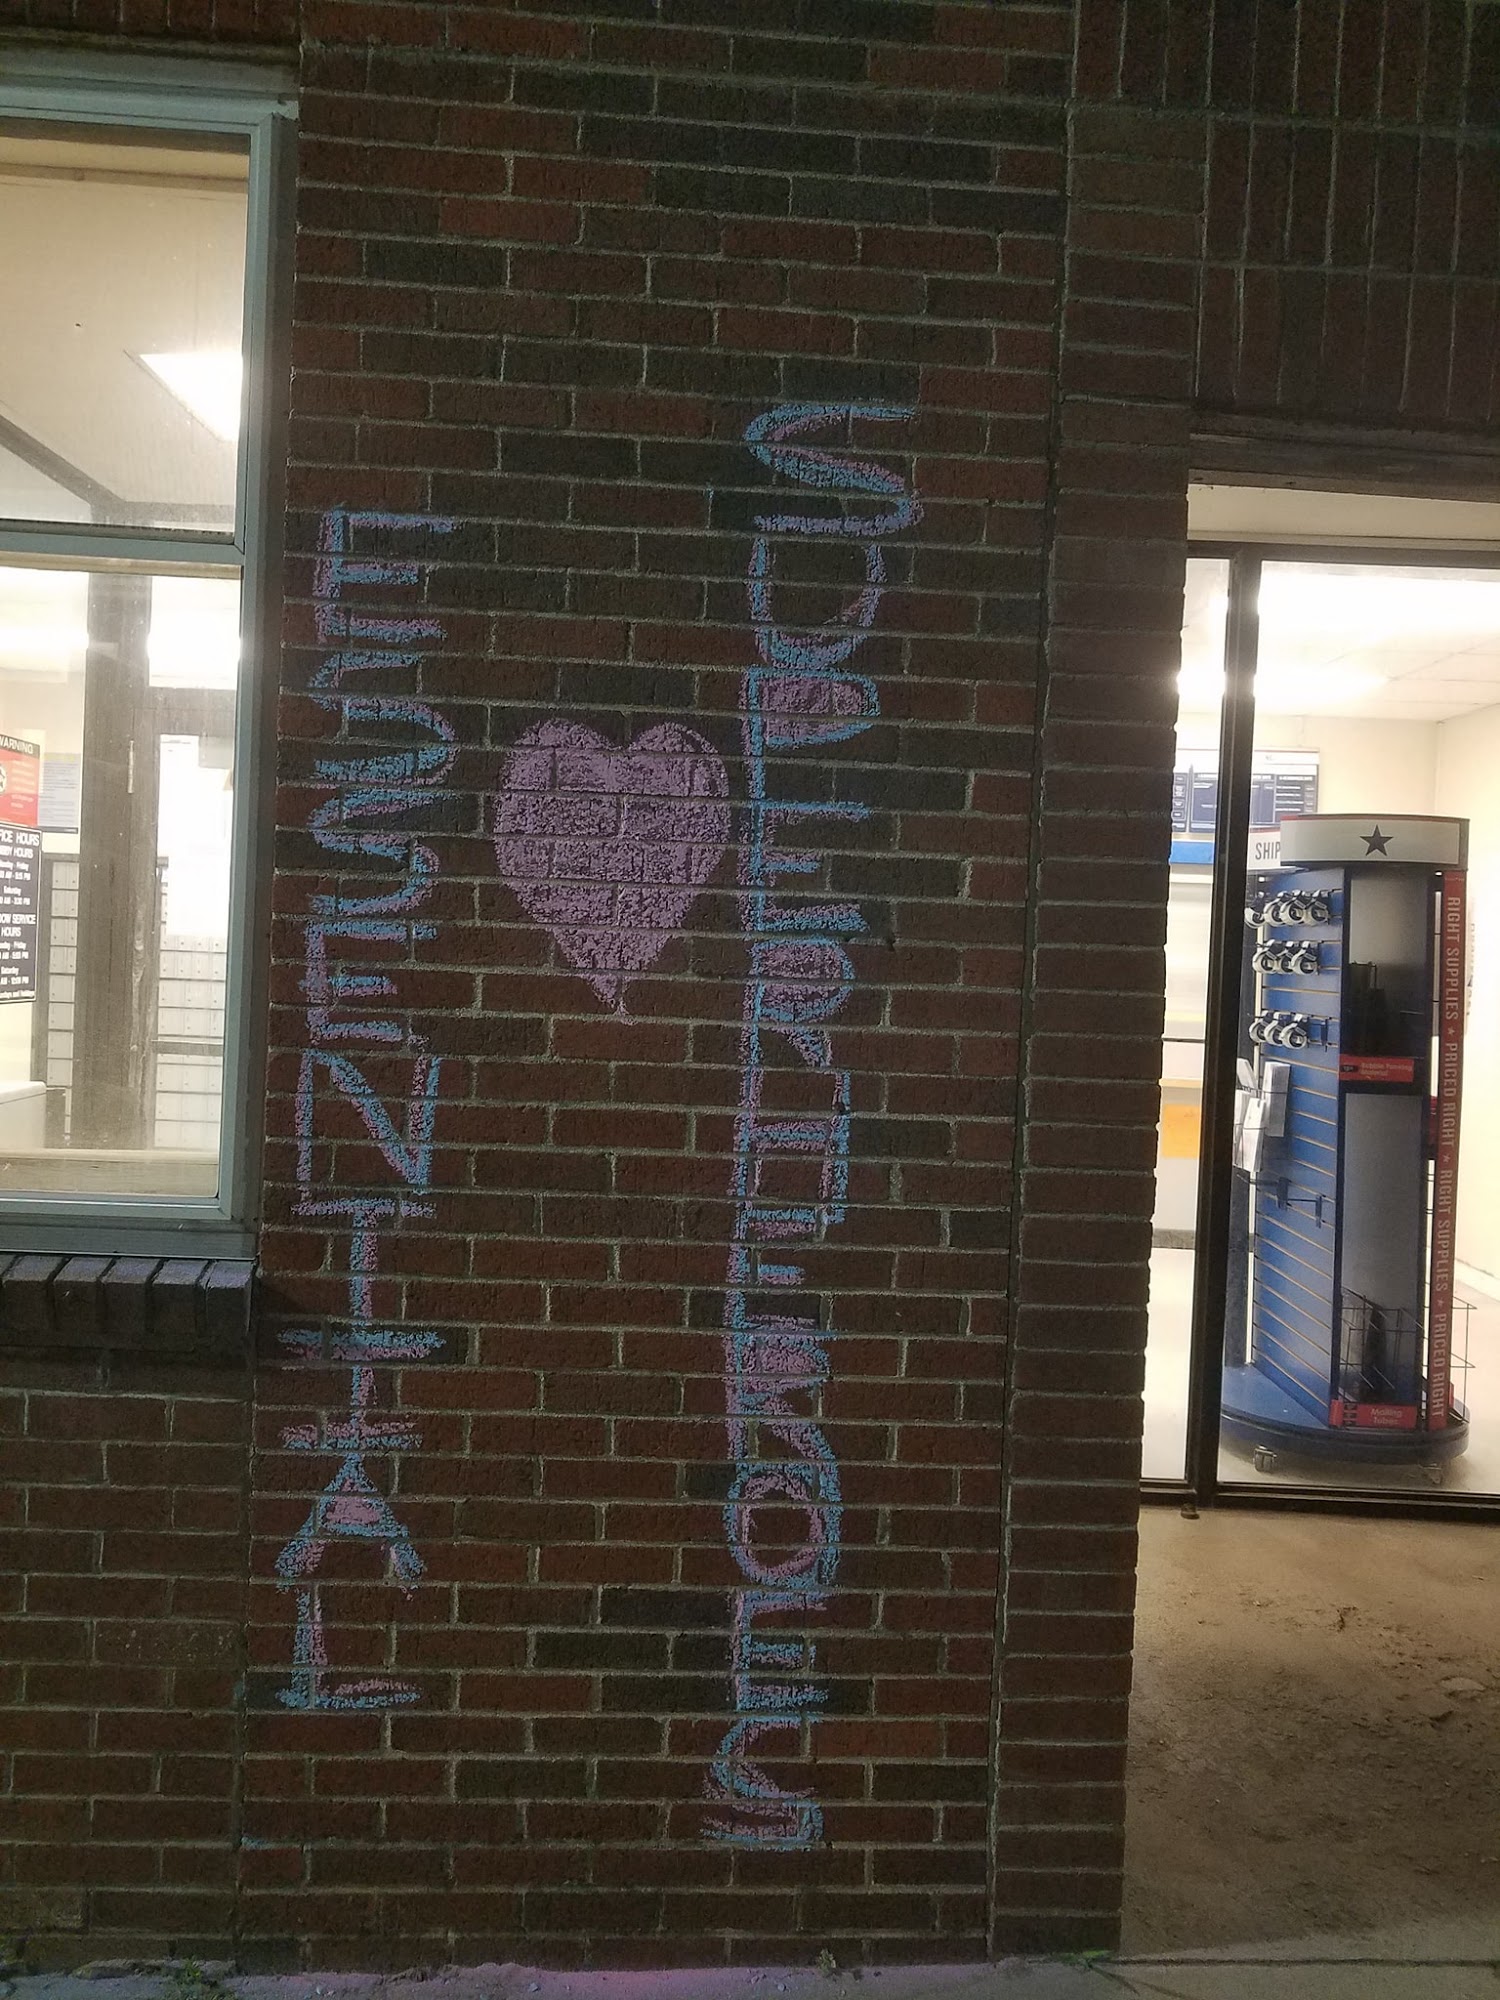 ESSENTIAL
SUPERHEROES
WARNING
FICE HOURS
BBY HOURS
Saturday
OW SERVICE
HOURS
Saturday
SHIP
RIGHT SUPPLIES ★ PRICED RIGHT ★ RIGHT SUPPLIES ★ PRICED RIGHT
Mailing
Tubes